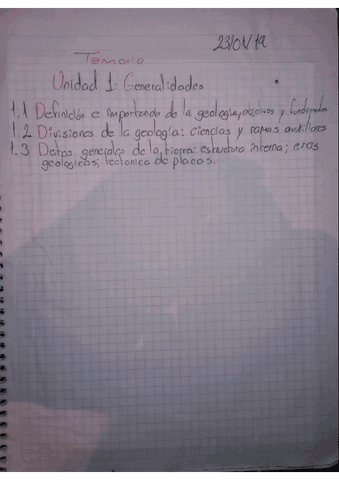 23/01/19
Temario
Unidad 1: Generalidades
1.1 Definición e importancia de la geología, objetivos y fundamentos
1.2 Divisiones de la geología: ciencias y ramas auxiliares
1.3 Datos generales de la tierra: estructura interna; eras
geologicas; tectonica de placas.